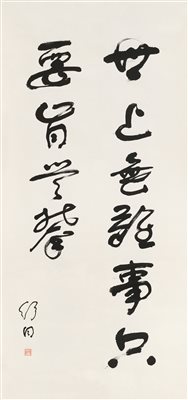 世上無難事只
要肯登攀
舒同